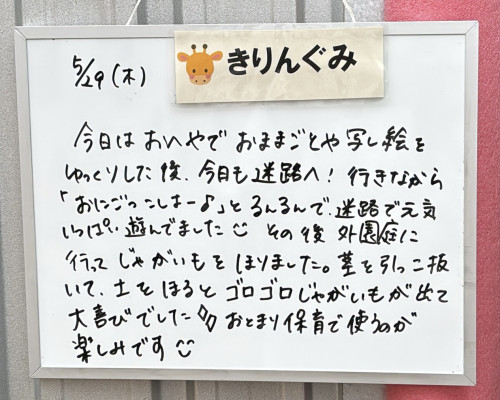 きりんぐみ
5/29(木)
今日は おへやで おままごとや 写し絵を
ゆっくりした後、今日も 迷路へ! 行きながら
「おにごっこしよー♪」と るんるんで、迷路で元気
いっぱい 遊んでました☺ その後 外園庭に
行って じゃがいもを ほりました。茎を引っこ抜
いて、土を ほると ゴロゴロじゃがいもが 出て
大喜びでした おとまり保育で使うのが
楽しみです☺